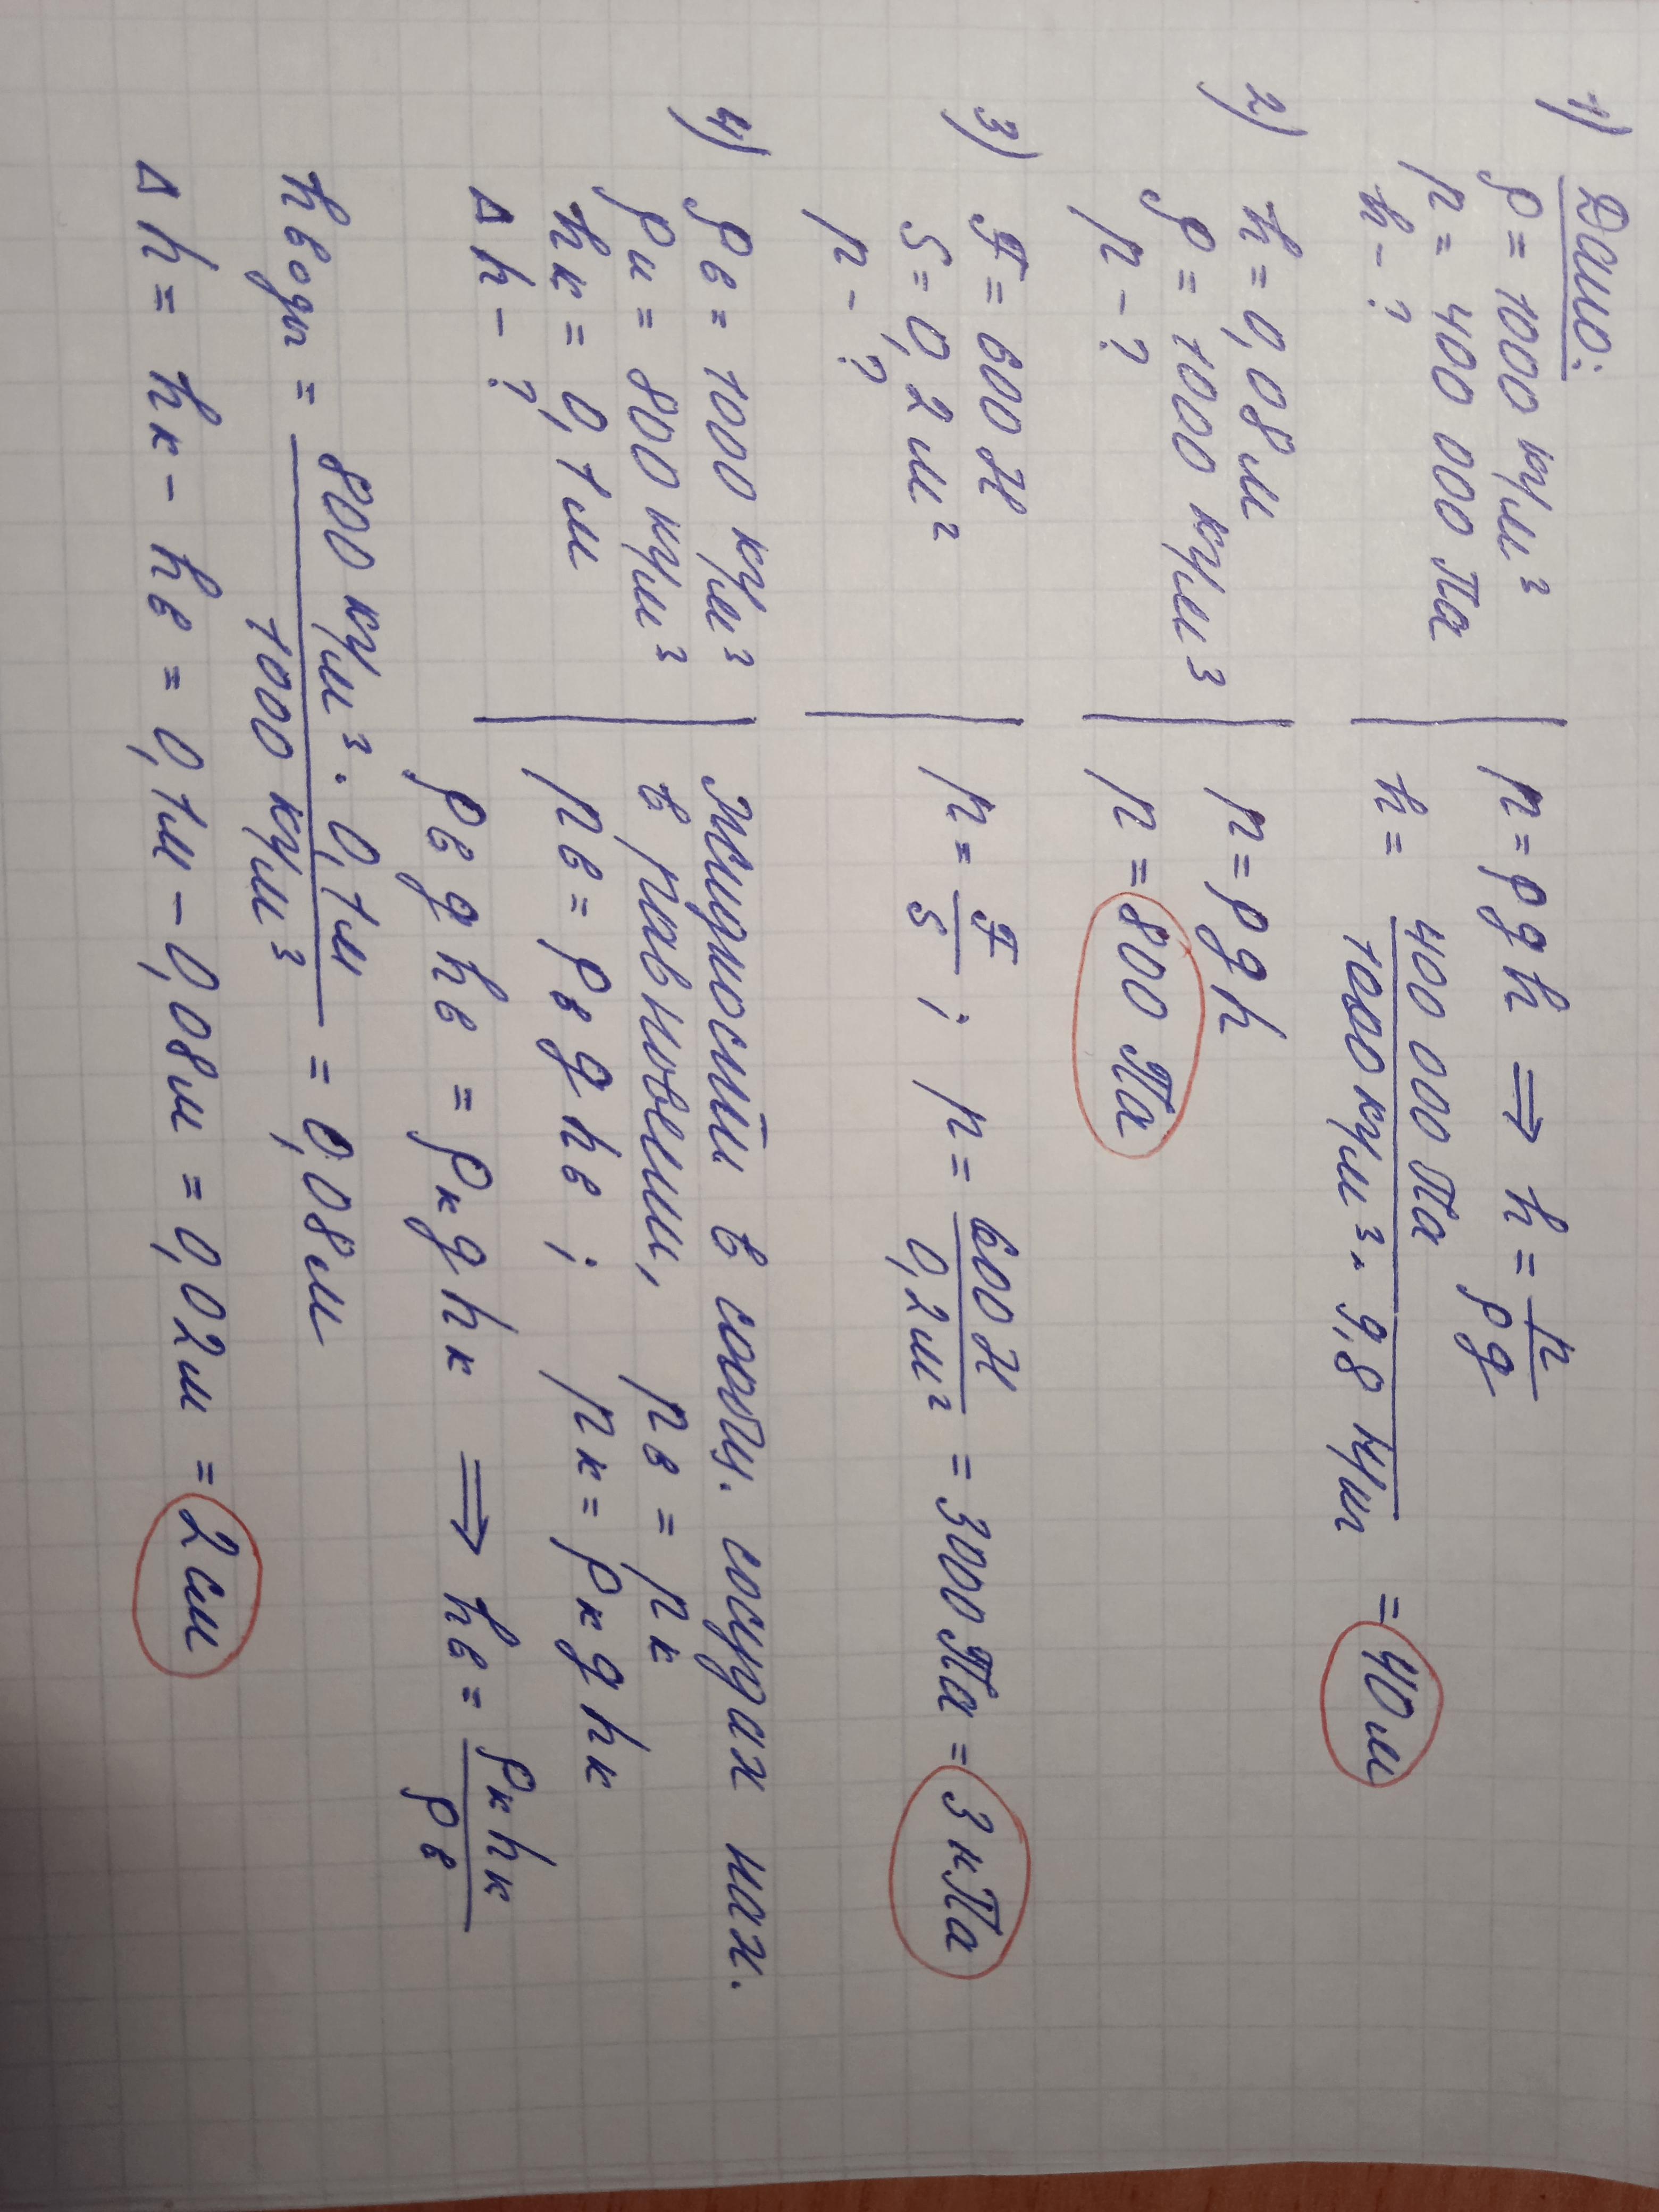 1) Дано:
ρ = 1000 кг/м³
p = 400 000 Па
h - ?
p = ρgh ⟹ h = p/ρg
h = 400 000 Па / 1000 кг/м³ · 9,8 Н/кг = 40 м
2) h = 0,08 м
ρ = 1000 кг/м³
p - ?
p = ρgh
p = 800 Па
3) F = 600 Н
S = 0,2 м²
p - ?
p = F/S ; p = 600 Н / 0,2 м² = 3000 Па = 3 кПа
4) ρв = 1000 кг/м³
ρк = 800 кг/м³
hк = 0,1 м
Δh - ?
Жидкости в сообщ. сосудах нах.
в равновесии, pв = pк
pв = ρв g hв ; pк = ρк g hк
ρв g hв = ρк g hк ⟹ hв = ρк hк / ρв
hводы = 800 кг/м³ · 0,1 м / 1000 кг/м³ = 0,08 м
Δh = hк - hв = 0,1 м - 0,08 м = 0,02 м = 2 см